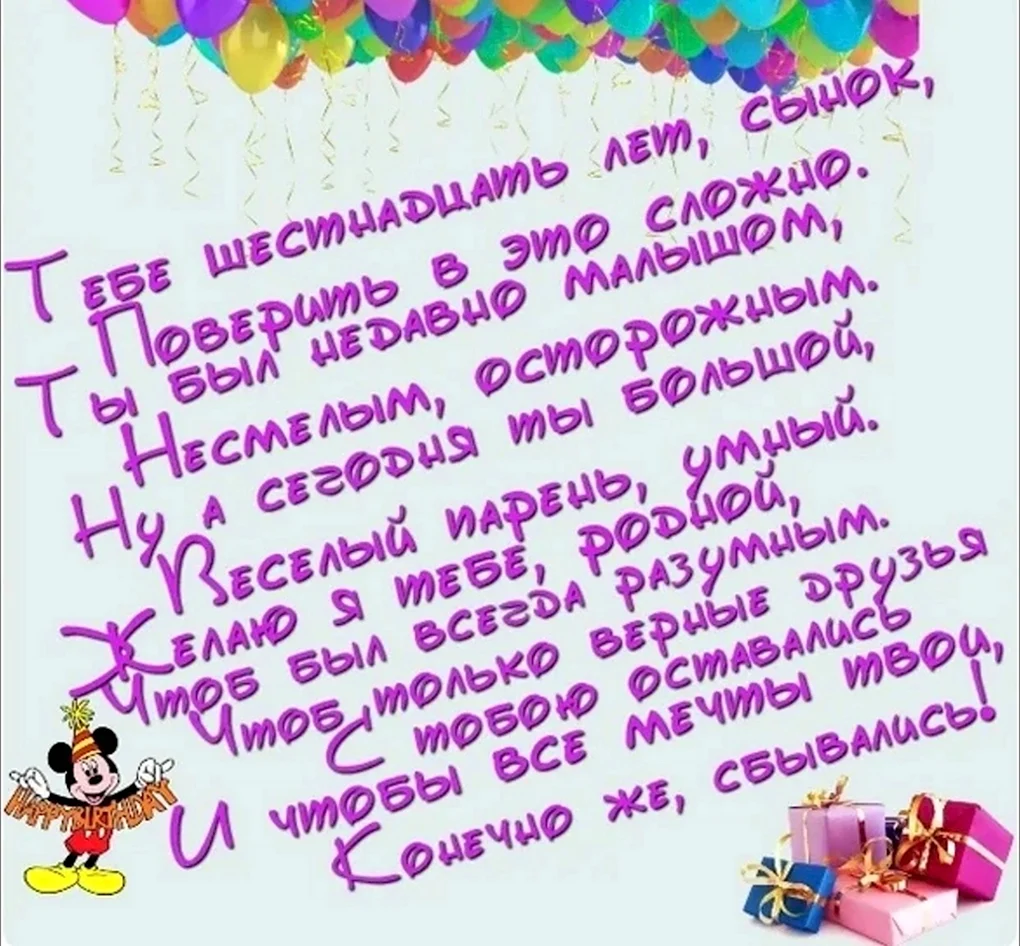 Тебе шестнадцать лет, сынок,
Поверить в это сложно.
Ты был недавно малышом,
Несмелым, осторожным.
Ну а сегодня ты большой,
Веселый парень, умный.
Желаю я тебе, родной,
Чтоб был всегда разумным.
Чтоб только верные друзья
С тобою оставались
И чтобы все мечты твои,
Конечно же, сбывались!
HAPPY BIRTHDAY